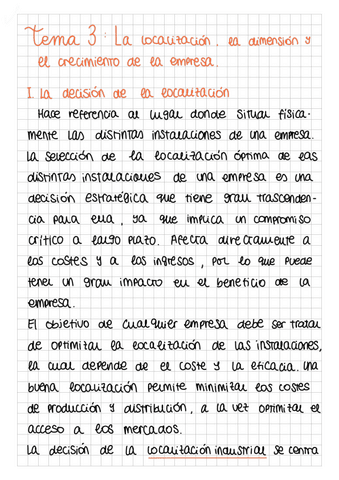 Tema 3: La localización, la dimensión y
el crecimiento de la empresa.
I. La decisión de la localización
Hace referencia al lugar donde situar física-
mente las distintas instalaciones de una empresa.
La selección de la localización óptima de las
distintas instalaciones de una empresa es una
decisión estratégica que tiene gran trascenden-
cia para ella, ya que implica un compromiso
crítico a largo plazo. Afecta directamente a
los costes y a los ingresos, por lo que puede
tener un gran impacto en el beneficio de la
empresa.
El objetivo de cualquier empresa debe ser tratar
de optimizar la localización de las instalaciones,
la cual depende de el coste y la eficacia. Una
buena localización permite minimizar los costes
de producción y distribución, a la vez optimizar el
acceso a los mercados.
La decisión de la localización industrial se centra